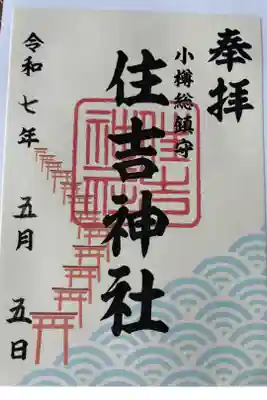 奉拝
小樽総鎮守
住吉神社
令和七年 五月 五日